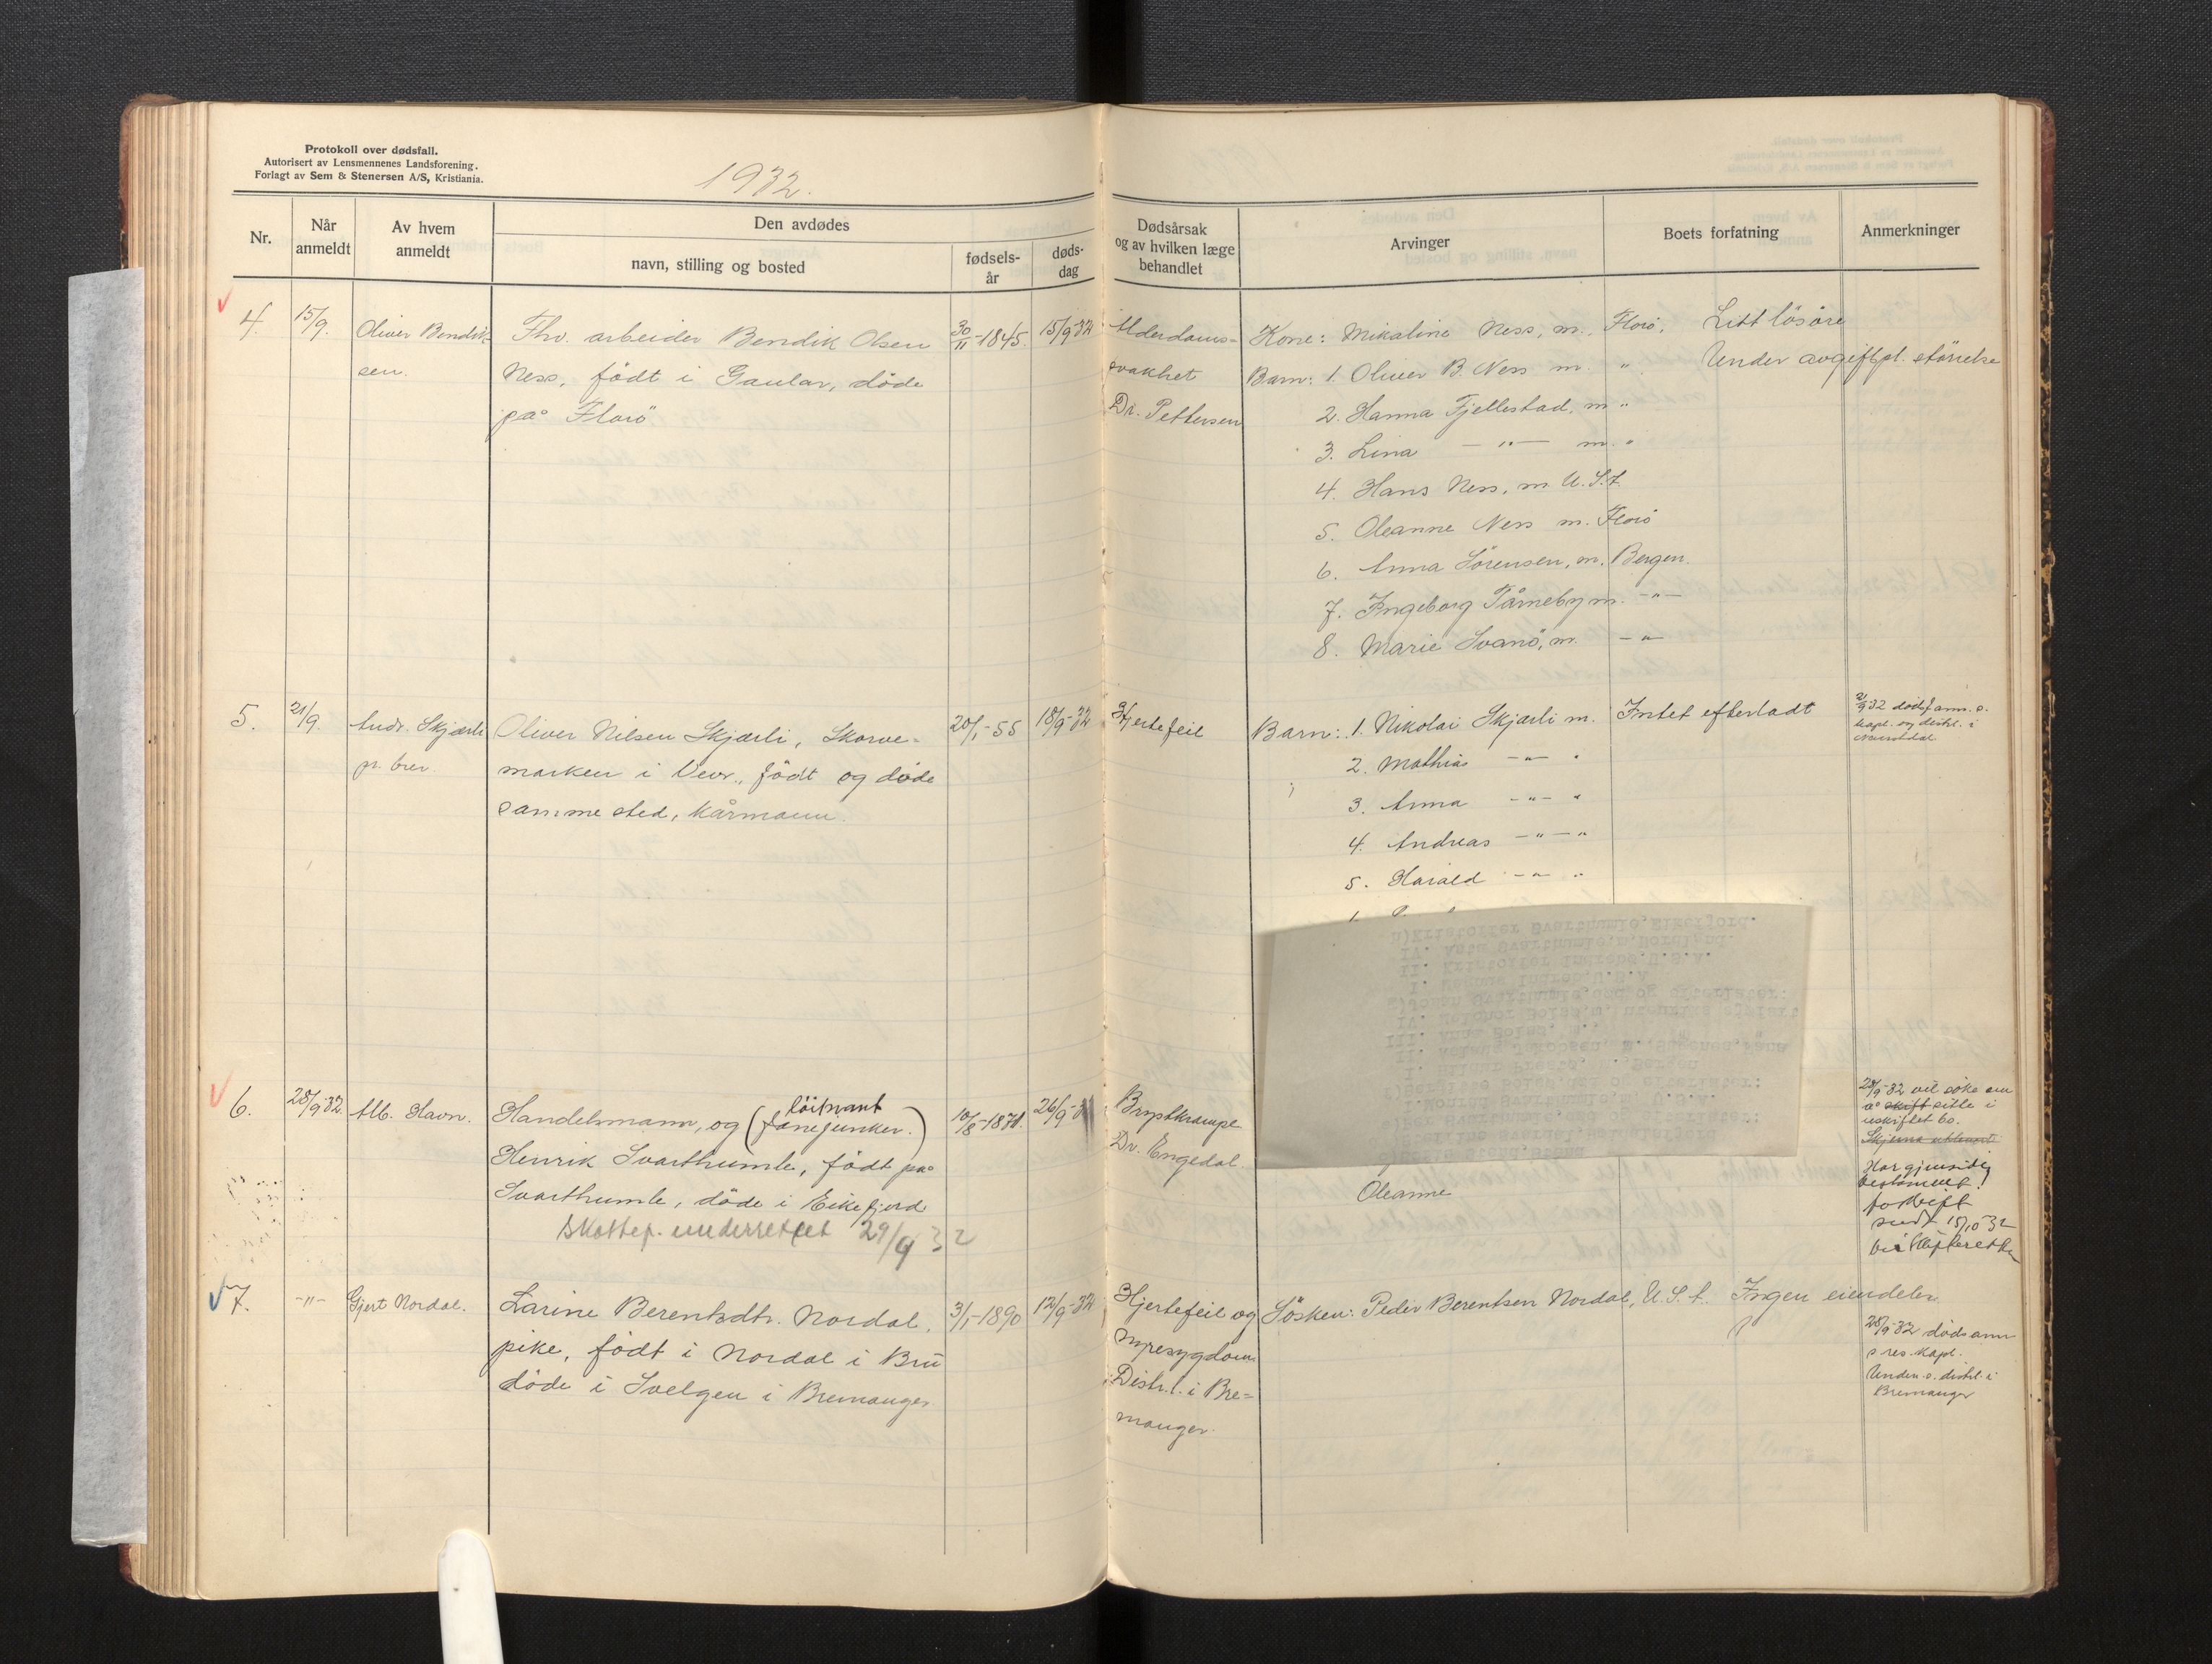 Protokoll over dødsfall.
Autorisert av Lensmennenes Landsforening.
Forlagt av Sem & Stenersen A/S, Kristiania.
1932.
Nr.
Når anmeldt
Av hvem anmeldt
Den avdødes
navn, stilling og bosted
fødsels-år
døds-dag
Dødsårsak og av hvilken læge behandlet
Arvinger
Boets forfatning
Anmerkninger
4.
15/9.
Oliver Bendik
sen.
Fhv. arbeider Bendik Olsen
Ness, födt i Gaular, döde
på Florö
30/11-1845.
15/9-32
Alderdoms-
svakhet
Dr. Pettersen
Kone: Mikaline Ness, m. Florö.
Barn: 1. Oliver B. Ness m. "
2. Hanna Fjellestad, m "
3. Lina -"- m. "
4. Hans Ness, m. U.S.A.
5. Oleanne Ness m. Florö
6. Anna Sörensen, m. Bergen.
7. Ingeborg Tårneby m. -"-
8. Marie Svanö, m. -"-
Litt lösöre
Under avgiftspl. störrelse
5.
21/9.
Andr. Skjærli
pr. brev
Oliver Nilsen Skjærli, Skorve-
marken i Vevr., födt og döde
samme sted, kårmann.
20/1-55
18/9-32
Hjertefeil
Barn: 1. Nikolai Skjærli m.
2. Mathias -"- "
3. Anna -"- "
4. Andreas -"- "
5. Harald -"- "
Intet efterladt
21/9 32 dödsanm. s.
kapl. og distrl. i
Naustdal.
6.
28/9-32.
Alb. Havn.
löitnant
Handelsmann, og (fanejunker.)
Henrik Svarthumle, födt på
Svarthumle, döde i Eikefjord
Skattef. underrettet 29/9 32
10/8-1871.
26/9-3
Brystkrampe
Dr. Engedal
Oleanne
28/9-32 vil söke om
å skift sitte i
uskiftet bo.
Har gjensidig
testament!
sendt 15/10-32
a) Kristoffer Svarthumle, Eikefjord.
IV. Asta Svarthumle, m, Hornland.
II. Kristoffer Indrebø, U.S.A.
I. Rasmus Indrebø, U.S.A.
7.
-"-
Gjert Nordal.
Larine Berentsdtr. Nordal,
pike, födt i Nordal i Bru
döde i Svelgen i Bremanger
3/1-1890
12/9-32
Hjertefeil og
nyresygdom
Distr.l. i Bre-
manger.
Sösken: Peder Berentsen Nordal, U.S.A.
Ingen eiendeler
28/9-32 dödsanm
s res. kapl.
Underr. s. distrl. i
Bremanger